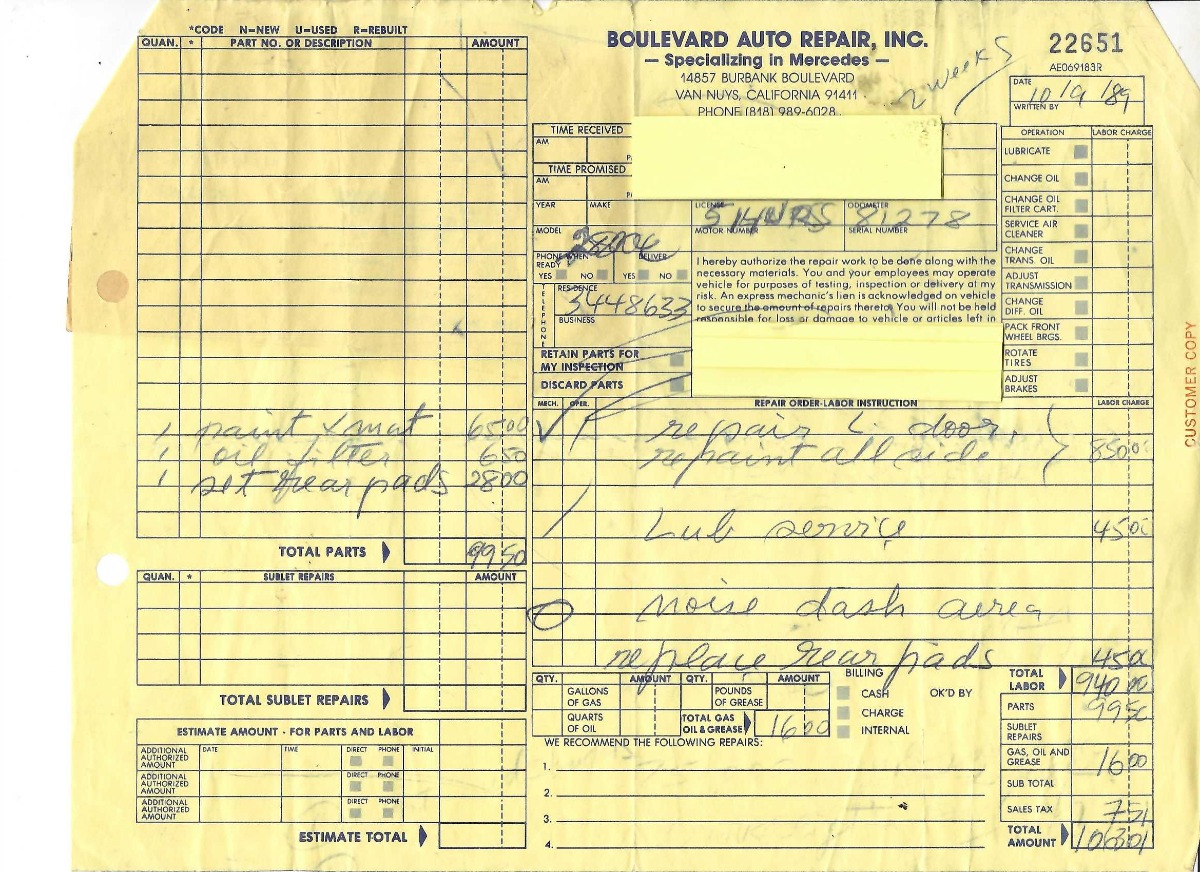 *CODE N=NEW U=USED R=REBUILT
QUAN. * PART NO. OR DESCRIPTION AMOUNT
1 paint & mat 65 00
1 oil filter 6 50
1 set rear pads 28 00
TOTAL PARTS 99 50
QUAN. * SUBLET REPAIRS AMOUNT
TOTAL SUBLET REPAIRS
ESTIMATE AMOUNT - FOR PARTS AND LABOR
ADDITIONAL AUTHORIZED AMOUNT DATE TIME DIRECT PHONE INITIAL
ADDITIONAL AUTHORIZED AMOUNT DIRECT PHONE
ADDITIONAL AUTHORIZED AMOUNT DIRECT PHONE
ESTIMATE TOTAL
BOULEVARD AUTO REPAIR, INC.
— Specializing in Mercedes —
14857 BURBANK BOULEVARD
VAN NUYS, CALIFORNIA 91411
PHONE (818) 989-6028
2 weeks
22651
AE069183R
DATE 10/9/89
WRITTEN BY
TIME RECEIVED
AM
TIME PROMISED
AM
YEAR MAKE
LICENSE ODOMETER 81278
MODEL
MOTOR NUMBER SERIAL NUMBER
PHONE WHEN READY DELIVER
YES NO YES NO
TELEPHONE
RESIDENCE 3448633
BUSINESS
RETAIN PARTS FOR
MY INSPECTION
DISCARD PARTS
I hereby authorize the repair work to be done along with the
necessary materials. You and your employees may operate
vehicle for purposes of testing, inspection or delivery at my
risk. An express mechanic's lien is acknowledged on vehicle
to secure the amount of repairs thereto. You will not be held
responsible for loss or damage to vehicle or articles left in
OPERATION LABOR CHARGE
LUBRICATE
CHANGE OIL
CHANGE OIL
FILTER CART.
SERVICE AIR
CLEANER
CHANGE
TRANS. OIL
ADJUST
TRANSMISSION
CHANGE
DIFF. OIL
PACK FRONT
WHEEL BRGS.
ROTATE
TIRES
ADJUST
BRAKES
CUSTOMER COPY
MECH. OPER. REPAIR ORDER-LABOR INSTRUCTION LABOR CHARGE
repair L. door,
repaint all side 850 00
Lub service 45 00
noise dash aerea
replace rear pads 45 00
QTY. AMOUNT QTY. AMOUNT
GALLONS OF GAS POUNDS OF GREASE
QUARTS OF OIL TOTAL GAS OIL & GREASE 16 00
BILLING
CASH OK'D BY
CHARGE
INTERNAL
WE RECOMMEND THE FOLLOWING REPAIRS:
1.
2.
3.
4.
TOTAL LABOR 940 00
PARTS 99 50
SUBLET REPAIRS
GAS, OIL AND GREASE 16 00
SUB TOTAL
SALES TAX 7 51
TOTAL AMOUNT 1063 01